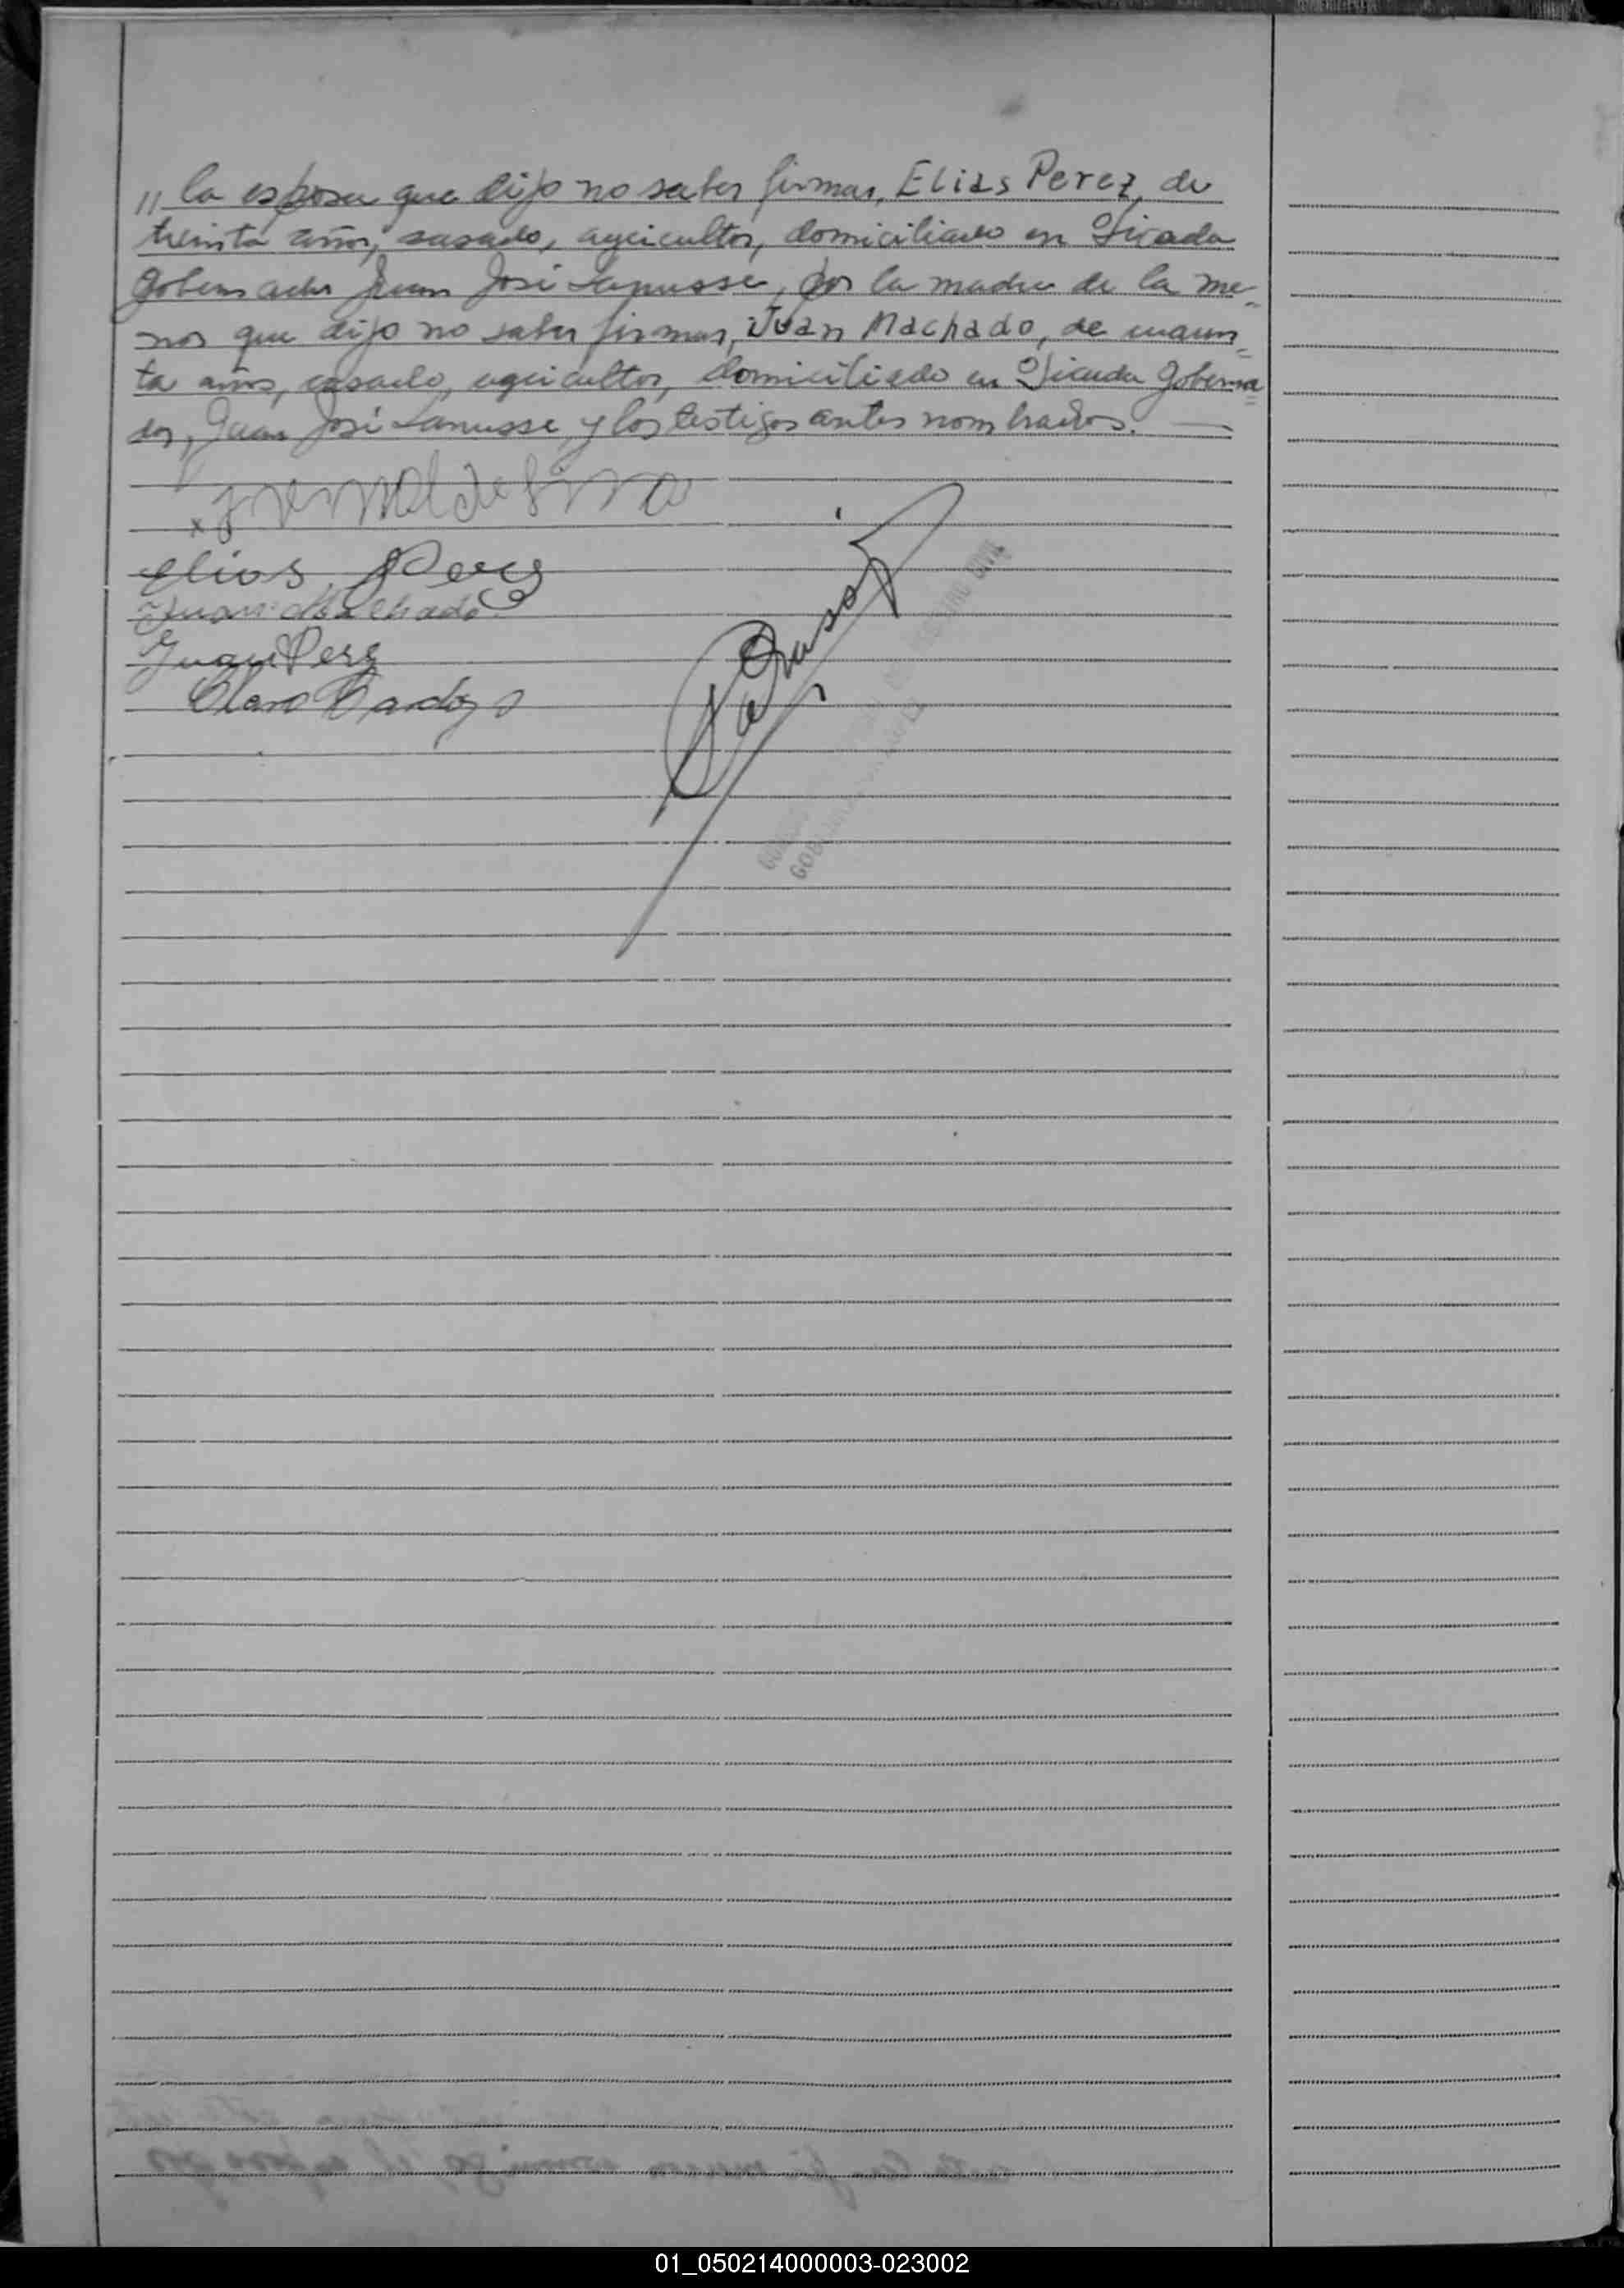 // la esposa que dijo no saber firmar, Elias Perez, de
treinta años, casado, agricultor, domiciliado en Picada
Gobernador Juan José Lanusse, por la madre de la me-
nor que dijo no saber firmar, Juan Machado, de cuaren-
ta años, casado, agricultor, domiciliado en Picada Goberna=
dor, Juan José Lanusse y los testigos antes nombrados.
x
Elias Perez
Juan Machado
Juan Perez
Claro Cardozo
01_050214000003-023002